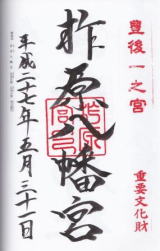 豊後一之宮
重要文化財
柞原八幡宮
平成二十七年五月三十一日